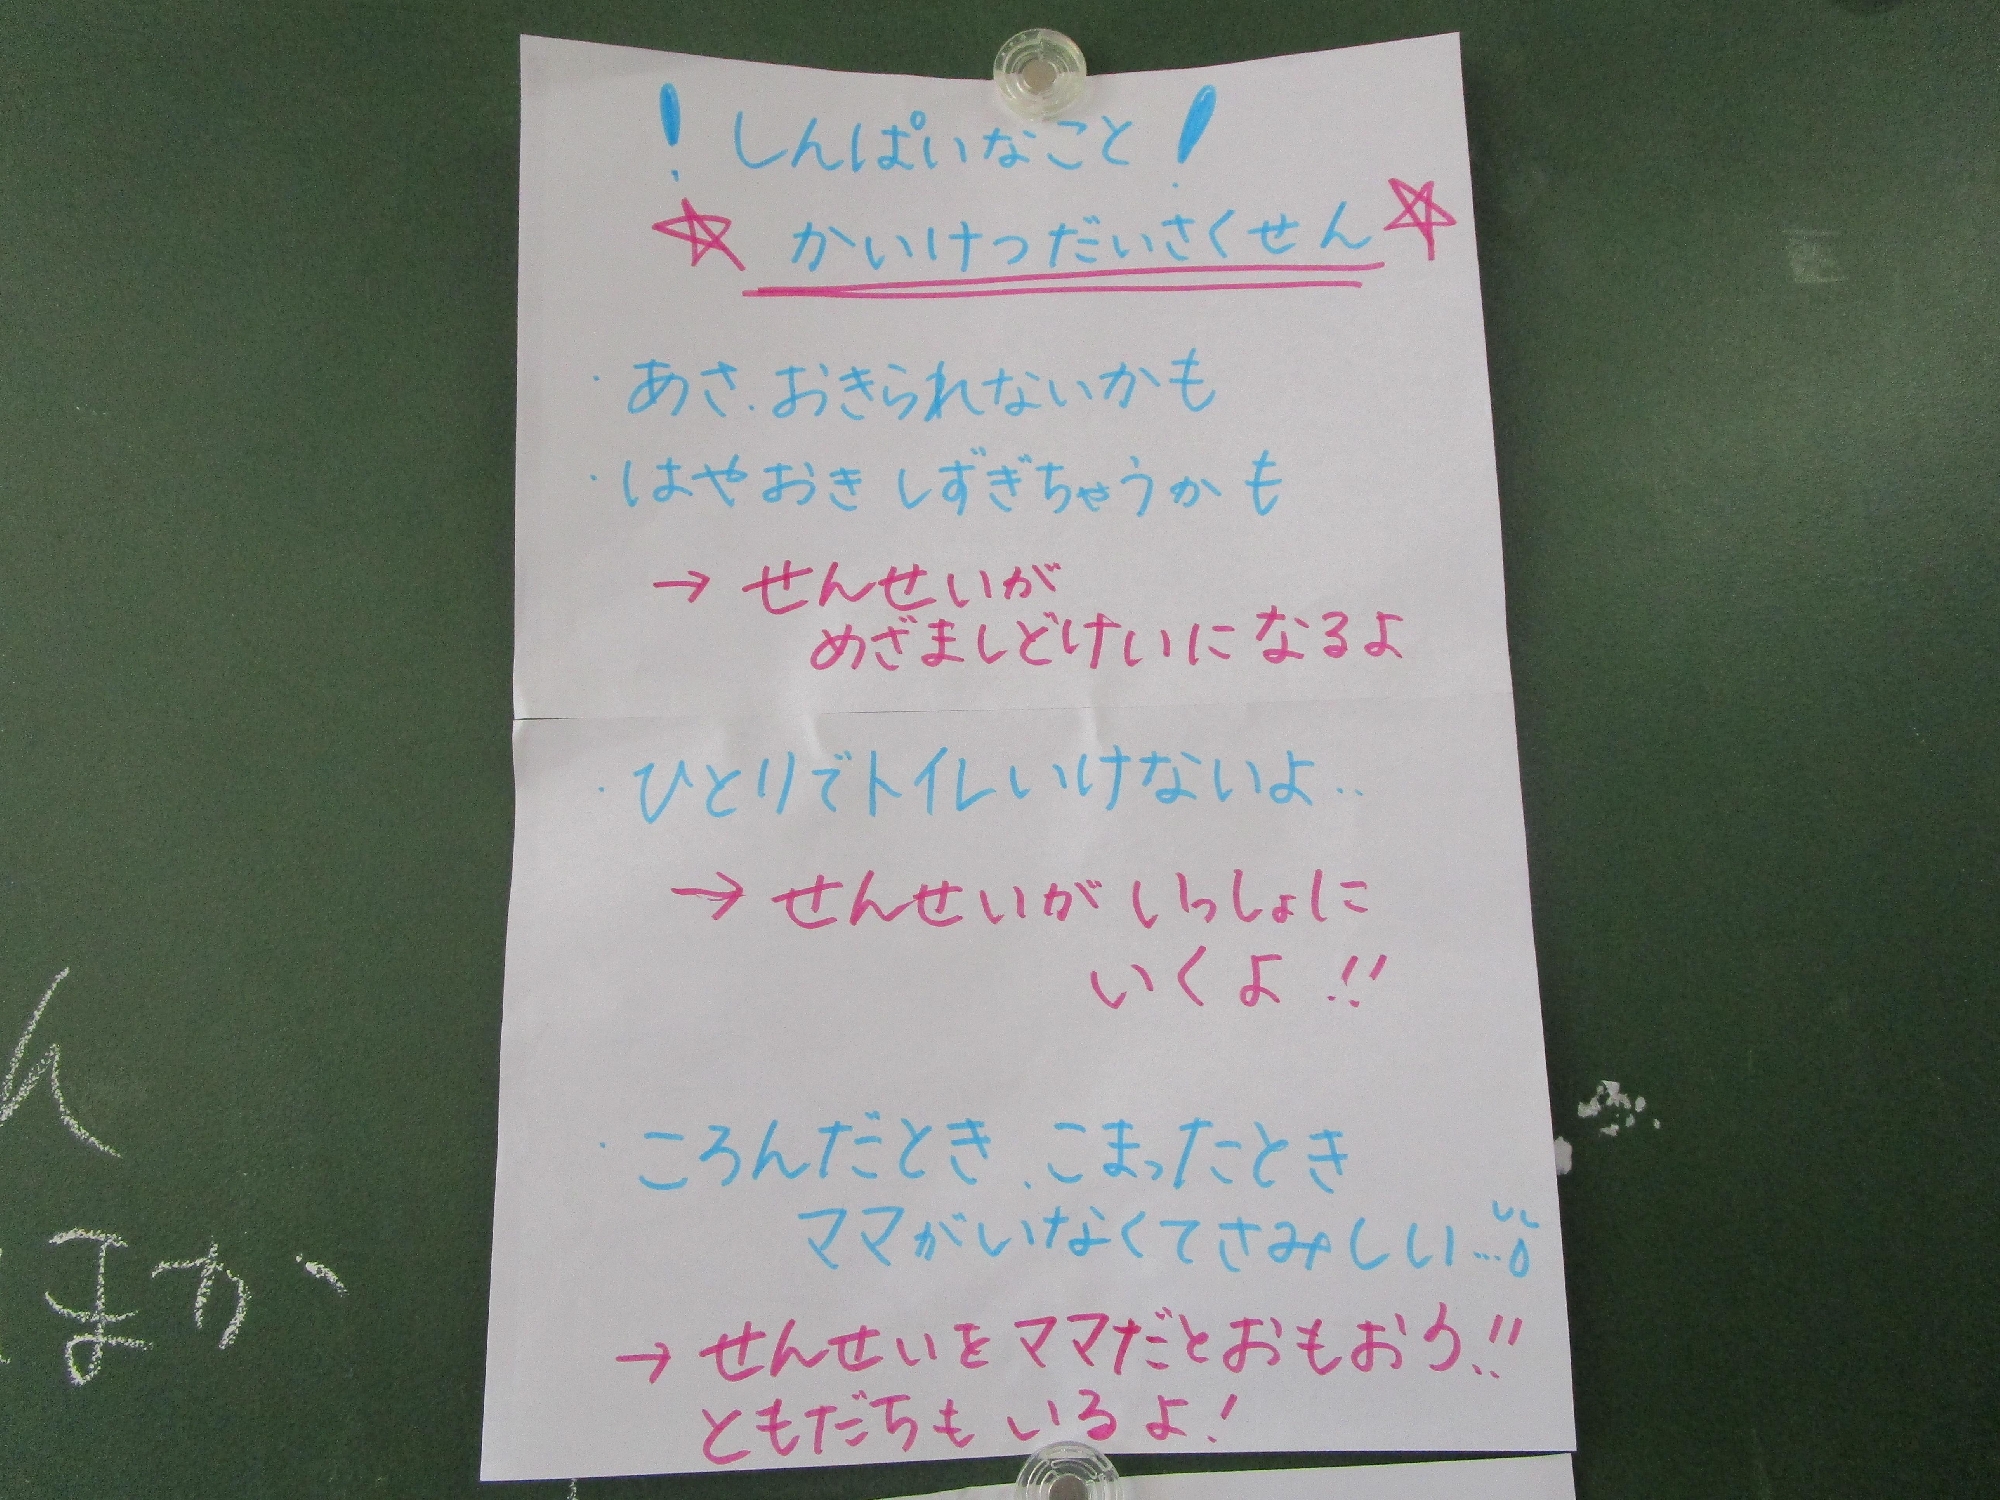 ！しんぱいなこと！
☆かいけつだいさくせん☆
・あさ、おきられないかも
・はやおきしずぎちゃうかも
→せんせいが
めざましどけいになるよ
・ひとりでトイレいけないよ‥
→せんせいがいっしょに
いくよ!!
・ころんだとき、こまったとき
ママがいなくてさみしい…
→せんせいをママだとおもおう!!
ともだちもいるよ！
ん
まか